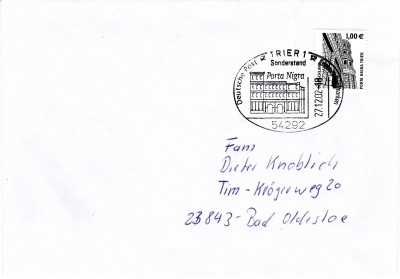 1,00 €
PORTA NIGRA TRIER
Deutsche Post
TRIER 1
Sonderstand
Porta Nigra
27.12.02
54292
Fam
Dieter Knoblich
Tim-Krögerweg 20
23843-Bad Oldesloe